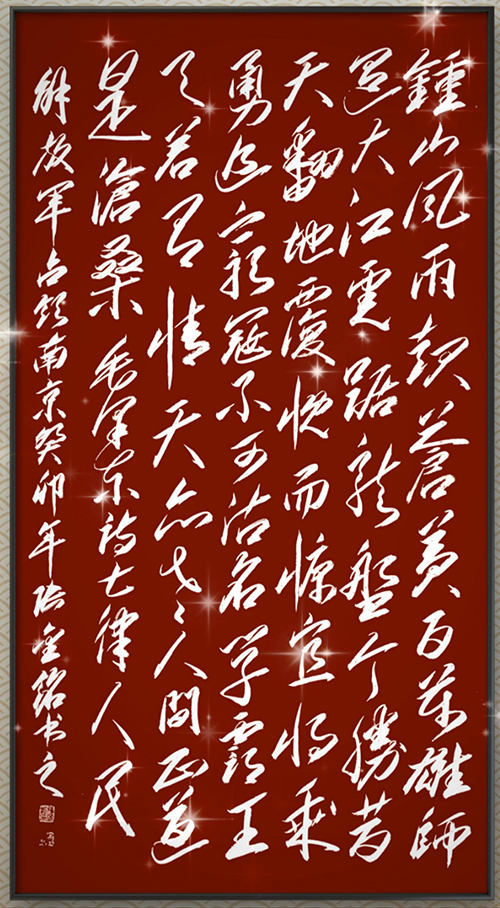 鍾山风雨起蒼黄百萬雄師
過大江虎踞龙盤今勝昔
天翻地覆慨而慷宜将乘
勇追窮寇不可沽名学霸王
天若有情天亦老人間正道
是滄桑 毛泽东詩七律人民
解放軍占领南京癸卯年张金铭书之